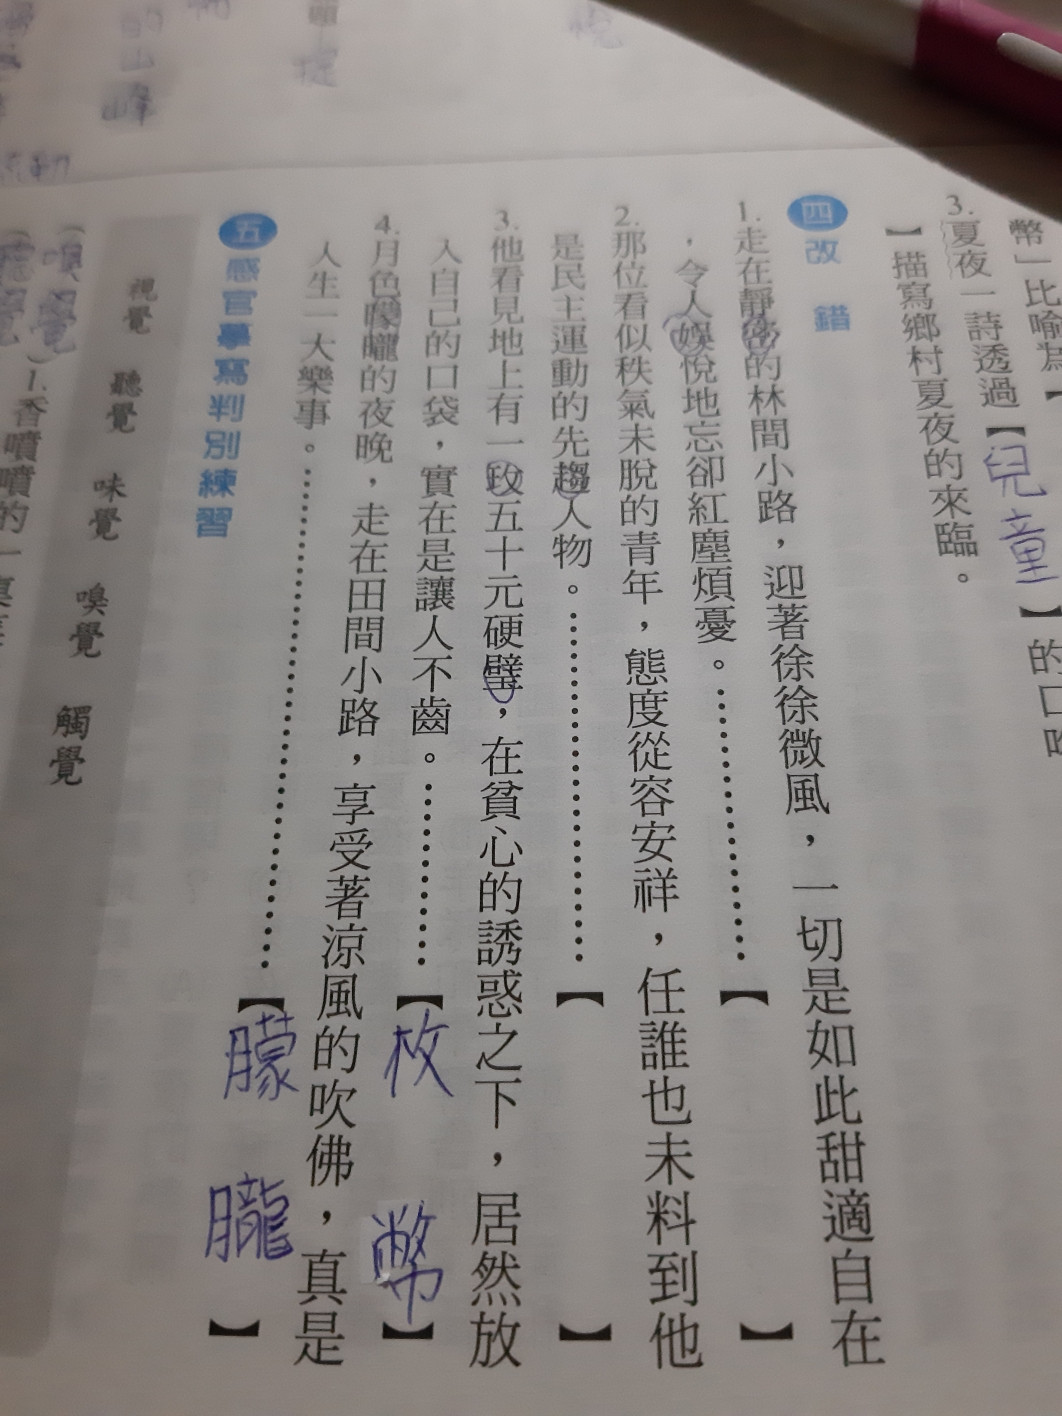 幣」比喻為【
3.夏夜一詩透過【兒童】的口吻
】描寫鄉村夏夜的來臨。
四 改錯
1.走在靜密的林間小路，迎著徐徐微風，一切是如此甜適自在
，令人娛悅地忘卻紅塵煩憂。…………【 】
2.那位看似秩氣未脫的青年，態度從容安祥，任誰也未料到他
是民主運動的先趨人物。…………【 】
3.他看見地上有一政五十元硬璧，在貧心的誘惑之下，居然放
入自己的口袋，實在是讓人不齒。…………【枚 幣】
4.月色曚曨的夜晚，走在田間小路，享受著涼風的吹佛，真是
人生一大樂事。…………【朦 朧】
五 感官摹寫判別練習
視覺 聽覺 味覺 嗅覺 觸覺
(嗅覺)1.香噴噴的一
的山峰